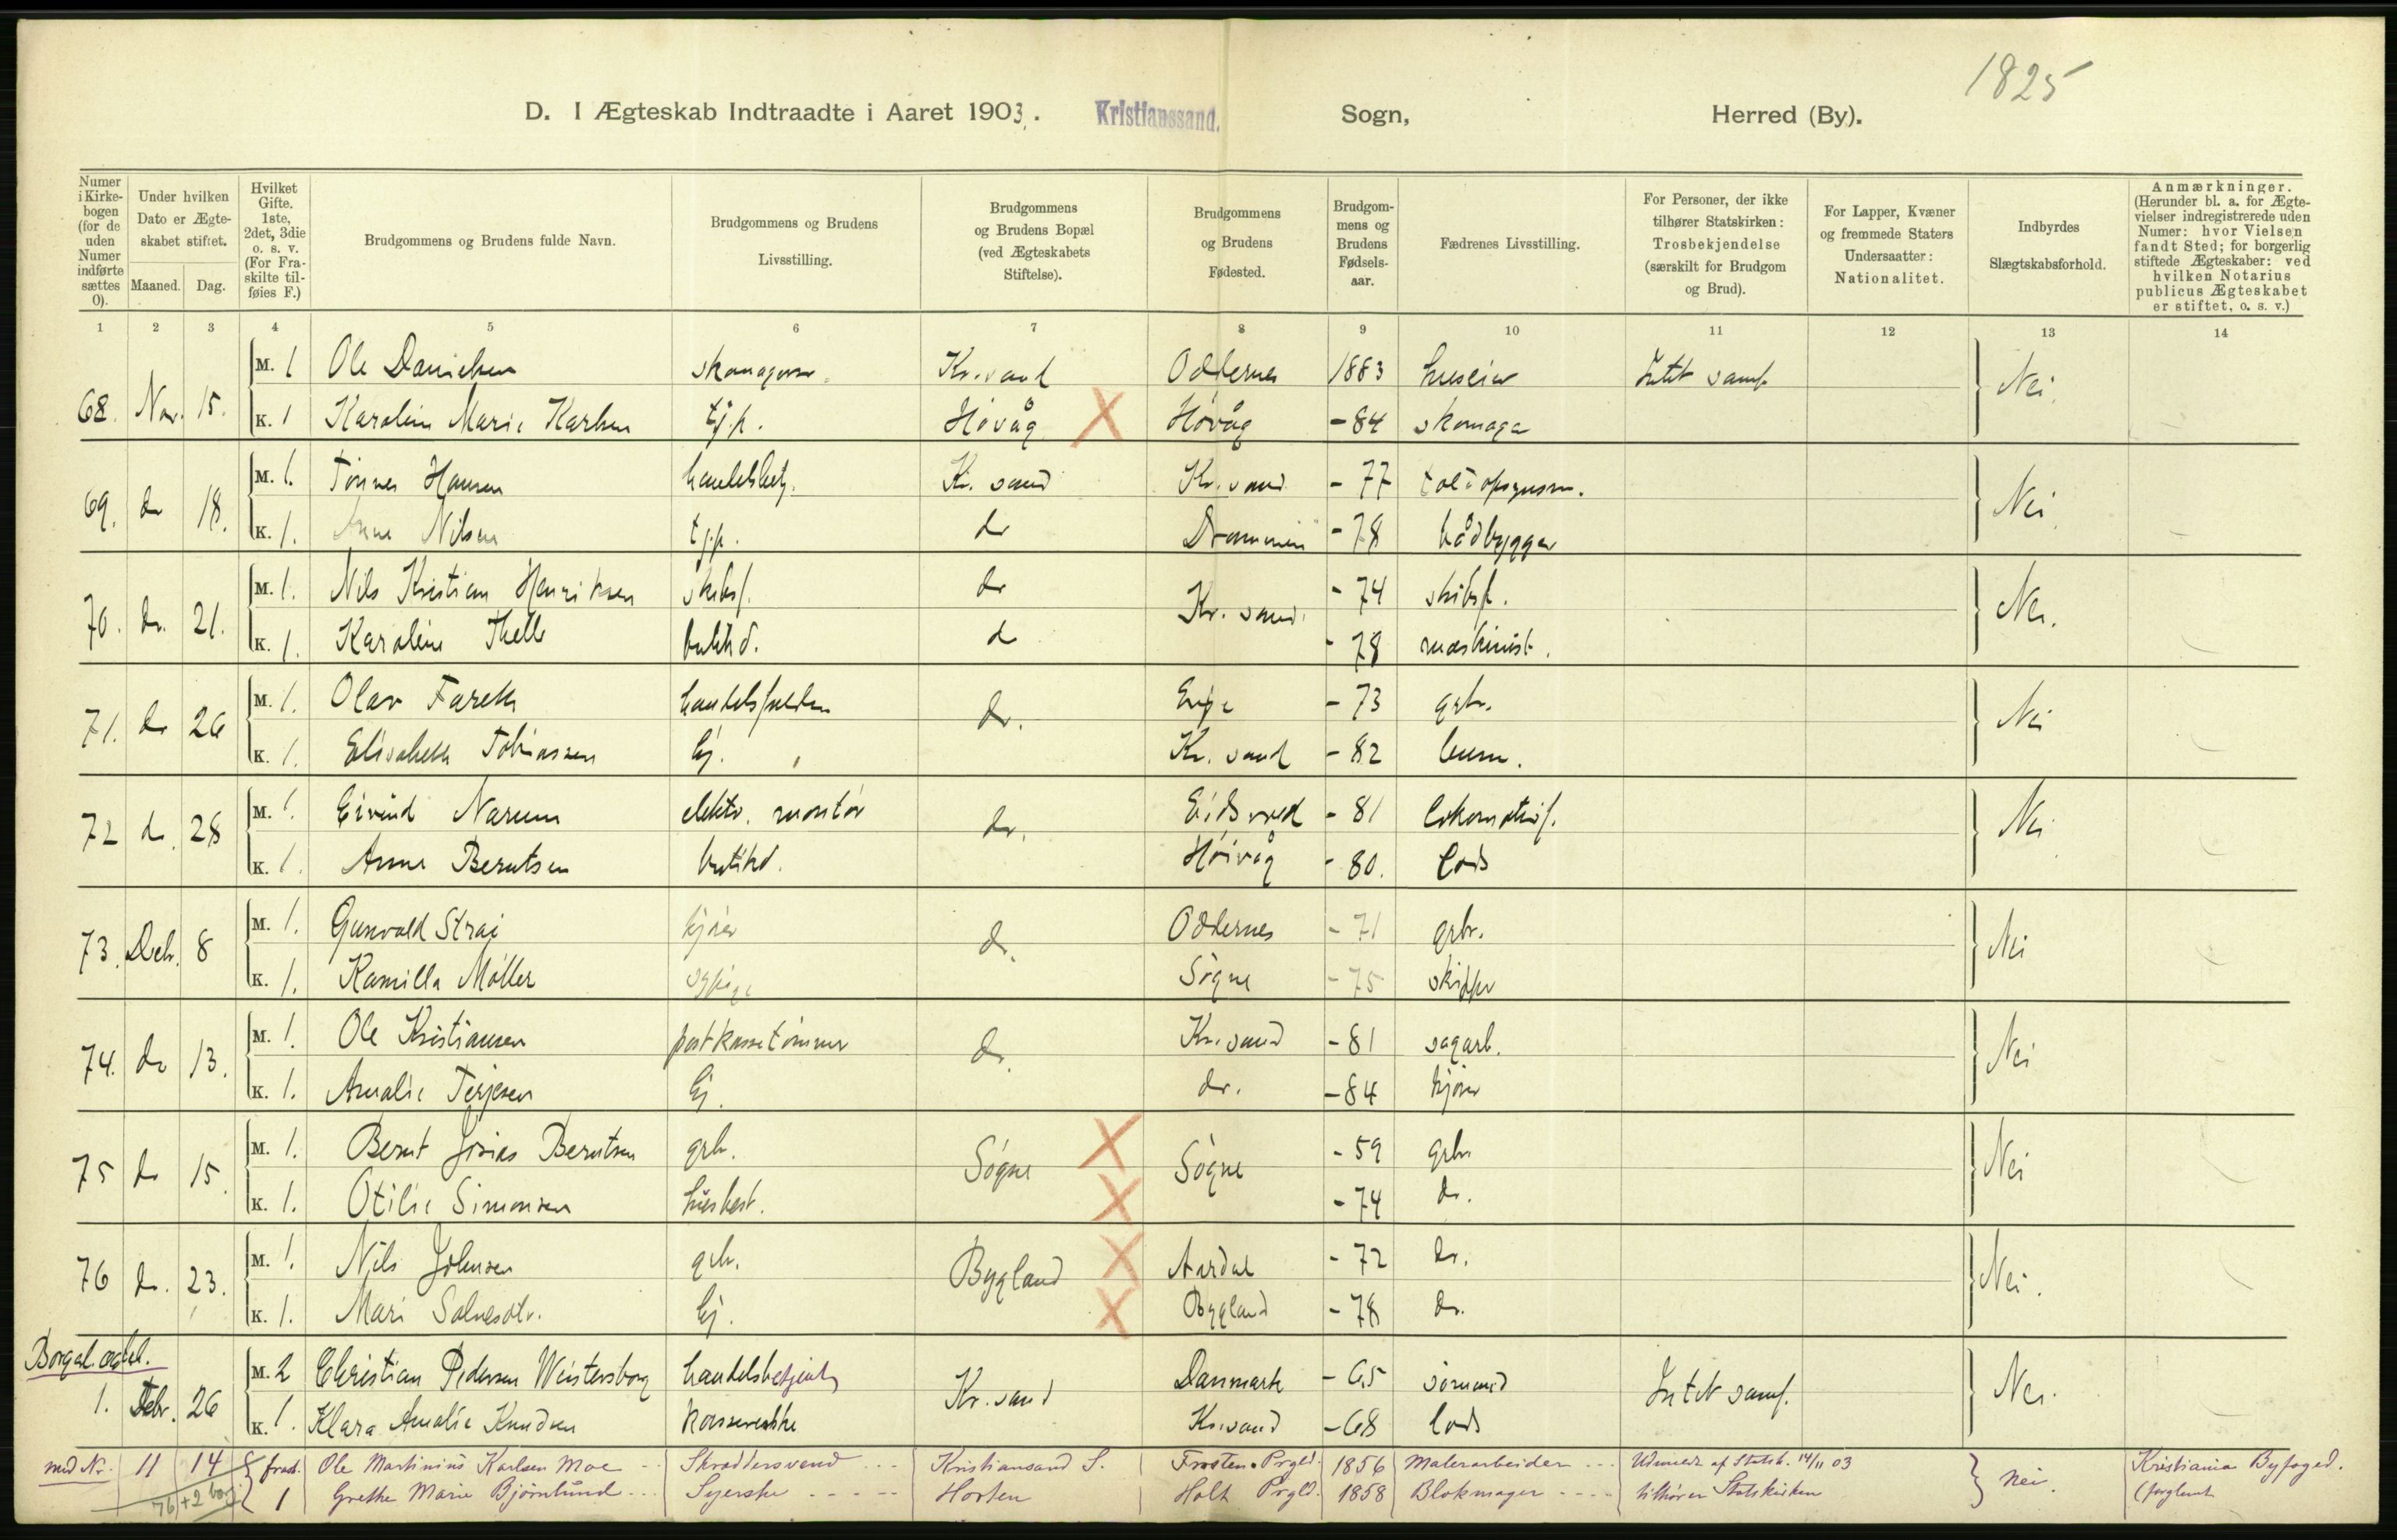 1825
D. I Ægteskab Indtraadte i Aaret 1903. Kristianssand. Sogn, Herred (By).
Numer i Kirkebogen (for de uden Numer indførte sættes 0).
Under hvilken Dato er Ægteskabet stiftet.
Maaned. Dag.
Hvilket Gifte. 1ste, 2det, 3die o. s. v. (For Fraskilte tilføies F.)
Brudgommens og Brudens fulde Navn.
Brudgommens og Brudens Livsstilling.
Brudgommens og Brudens Bopæl (ved Ægteskabets Stiftelse).
Brudgommens og Brudens Fødested.
Brudgommens og Brudens Fødselsaar.
Fædrenes Livsstilling.
For Personer, der ikke tilhører Statskirken: Trosbekjendelse (særskilt for Brudgom og Brud).
For Lapper, Kvæner og fremmede Staters Undersaatter: Nationalitet.
Indbyrdes Slægtskabsforhold.
Anmærkninger. (Herunder bl. a. for Ægtevielser indregistrerede uden Numer: hvor Vielsen fandt Sted; for borgerlig stiftede Ægteskaber: ved hvilken Notarius publicus Ægteskabet er stiftet, o. s. v.)
1 2 3 4 5 6 7 8 9 10 11 12 13 14
M. 1 Ole Danielsen Kr.sand Oddernes 1883 huseier Intet samf.
68. Nov. 15. K. 1 Karoline Marie Karlsen tj.p. Høvåg Høvåg -84 skomager Nei.
M. 1. Tønnes Hansen handelsbetj. Kr. sand Kr. sand - 77 toldopsynsm.
69. do 18. K. 1. Anne Nilsen tj.p. do Drammen - 78 bådbygger Nei
M. 1. Nils Kristian Henriksen skibsf. do Kr. sand. - 74 skibsf.
70. do. 21. K. 1. Karoline Thelle butikd. do - 78 maskinist. Nei.
M. 1. Olav Fareth handelsfuldm do. - 73 grbr.
71. do 26 K. 1. Elisabeth Tobiassen Ej. Kr. sand - 82 Nei
M. 1. Eivind Narum elektr. montør do. Eidsvold - 81 lokomotivf.
72 do. 28 K. 1. Anne Berntsen butikd. Høivåg - 80. lods Nei
M. 1. Gunvald Strai kjører do. Oddernes - 71 grbr.
73. Debr. 8 K. 1. Kamilla Møller sypige Søgne - 75 skipper Nei
M. 1. Ole Kristiansen postkassetømmer do. Kr. sand - 81 sagarb.
74. do 13. K. 1. Amalie Terjesen Ej. do. - 84 kjører Nei
M. 1. Bernt Josias Berntsen grbr. Søgne Søgne - 59 grbr.
75 do 15. K. 1. Otilie Simonsen husbest. - 74 do. Nei
M. 1. Nils Johnsen grbr. Bygland Aardal - 72 do.
76 do. 23. K. 1. Mari Salvesdtr. Ej. Bygland - 78 do. Nei.
Borgel. ægtesk.
M. 2 Christian Pedersen Weistersborg handelsbetjent Kr. sand Danmark - 65 sømand Intet samf.
1. Febr. 26 K. 1. Klara Amalie Knudsen kassererske Kr. sand - 68 lods Nei.
med Nr. 11 14 frask. Ole Martinius Karlsen Moe Skræddersvend Kristiansand S. Frosten Prgld. 1856 Malerarbeider Udmeldt af Statsk. 14/11 03 Kristiania Byfoged.
76 + 2 borg. 1 Grethe Marie Bjørnlund Syerske Horten Holt Prgld. 1858 Blokmager tilhører Statskirken Nei. (forglemt